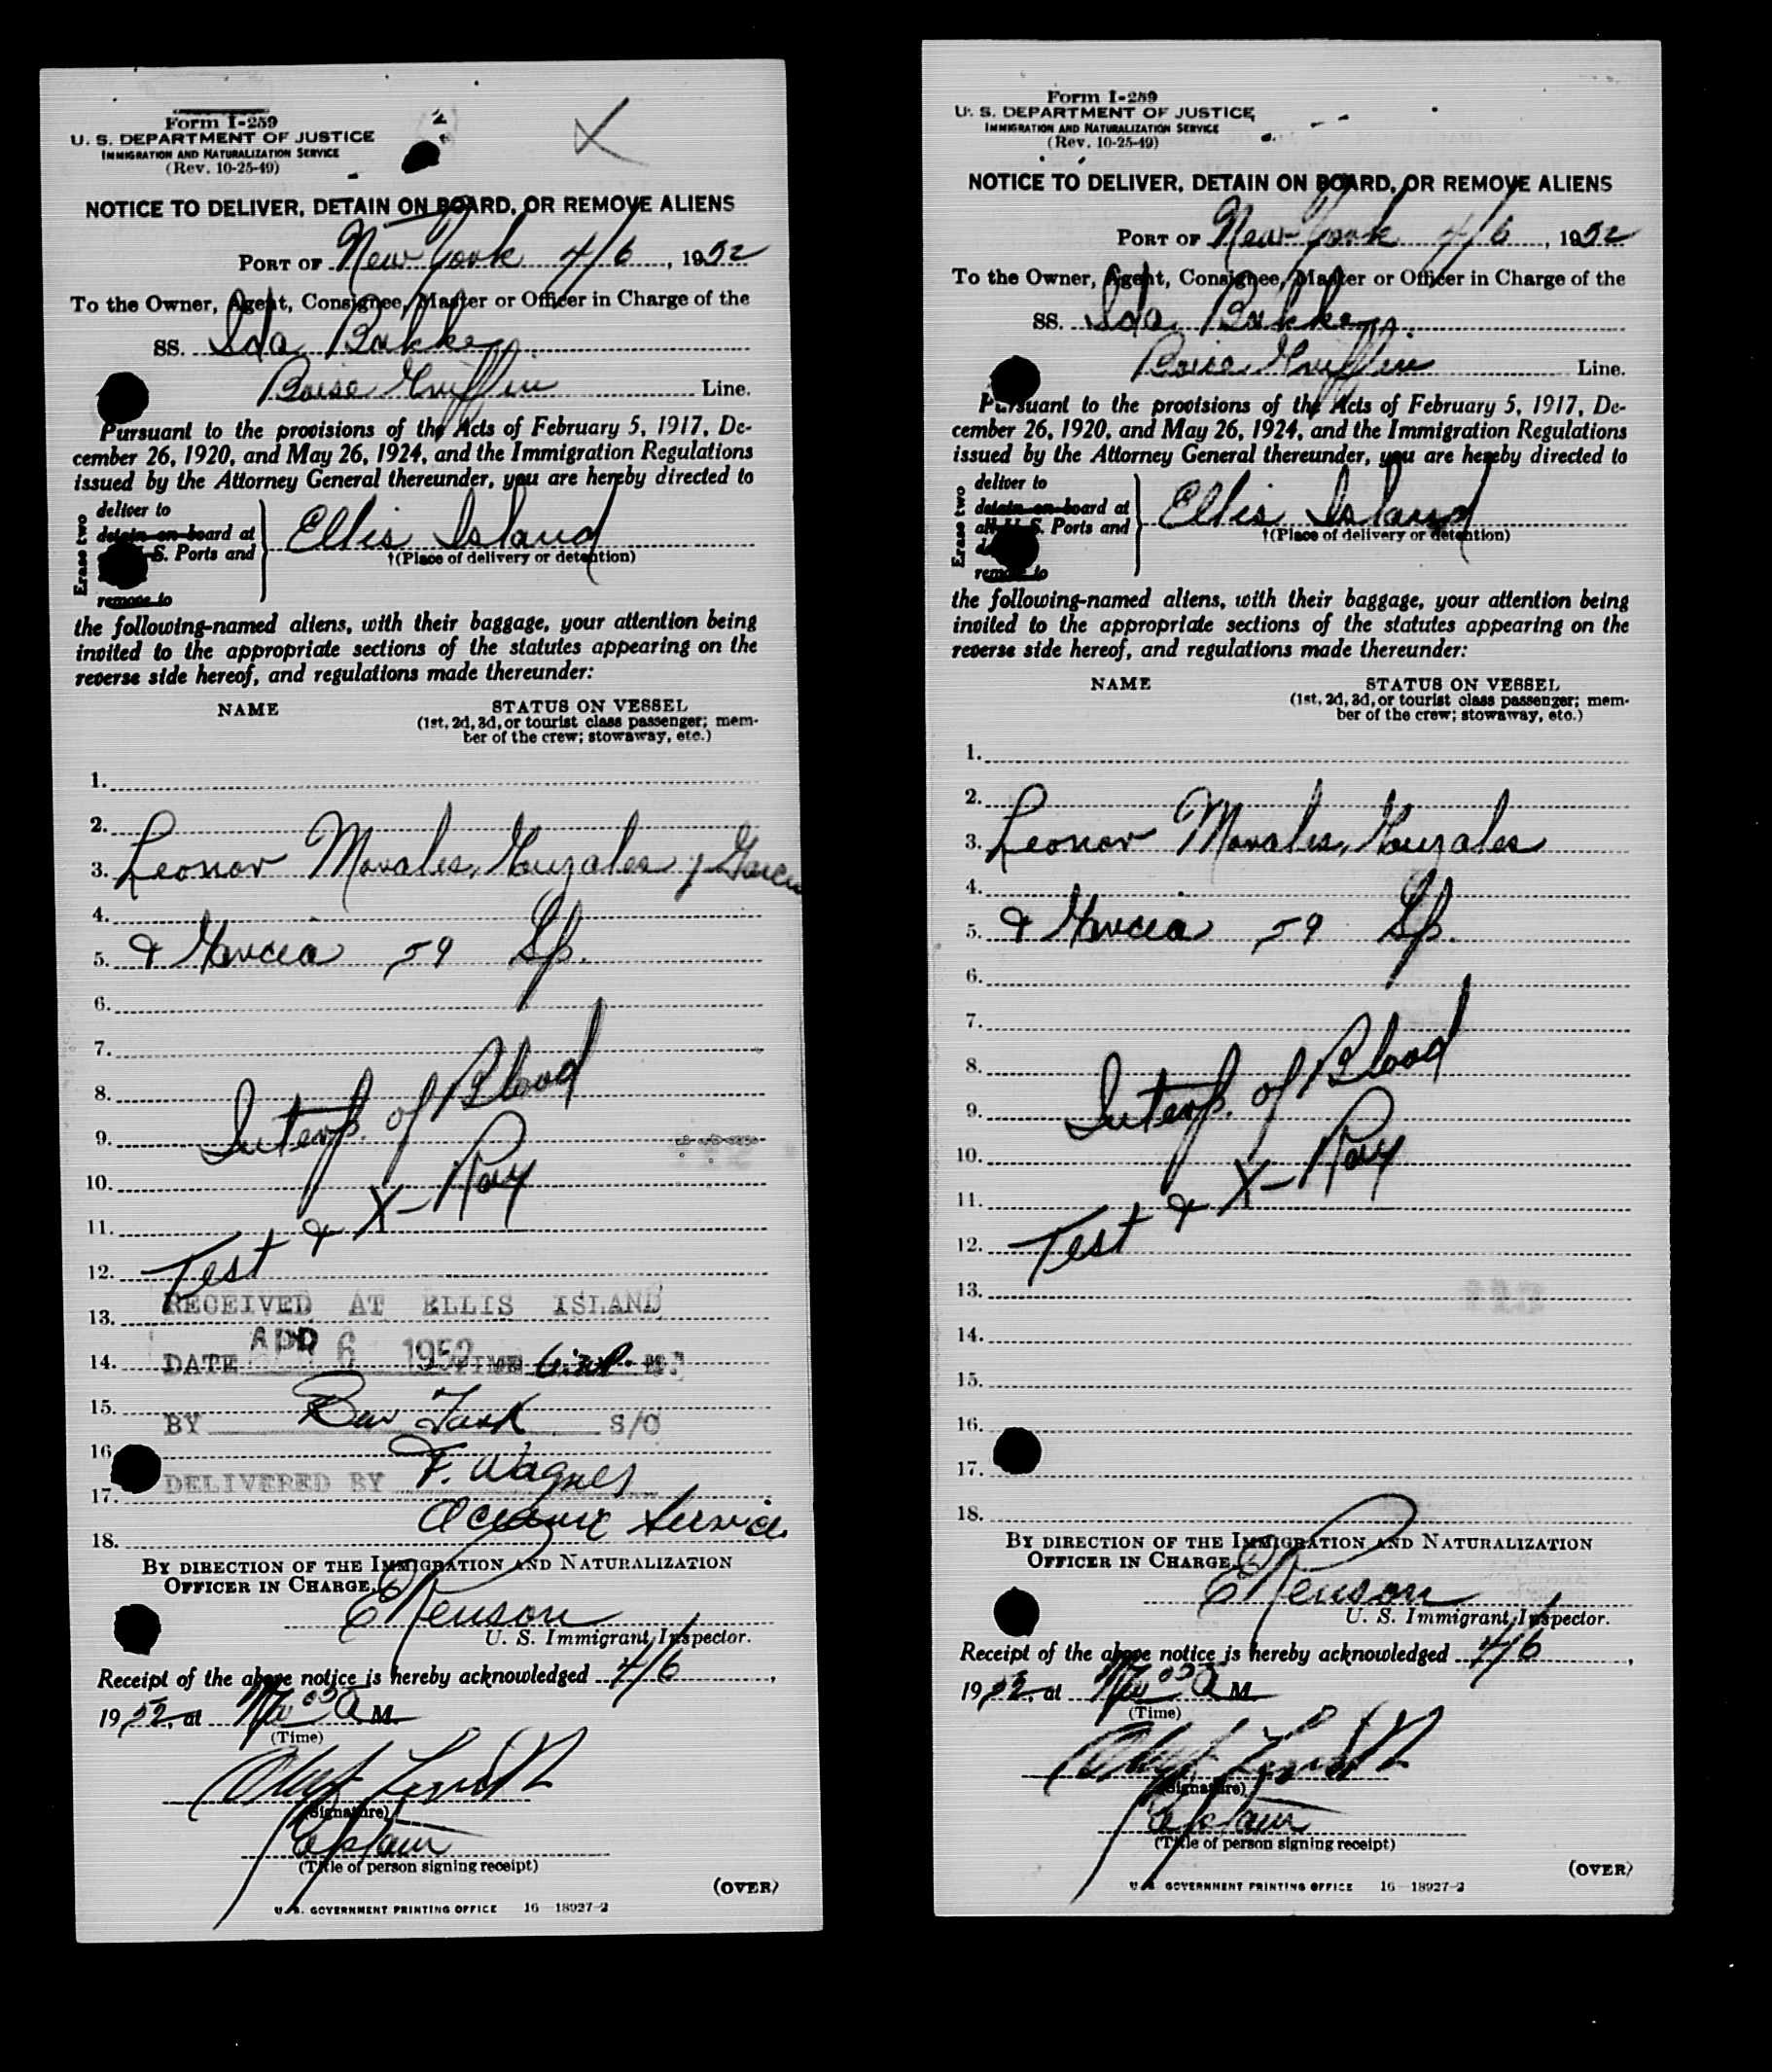 Form I-259
U. S. DEPARTMENT OF JUSTICE
IMMIGRATION AND NATURALIZATION SERVICE
(Rev. 10-25-49)
NOTICE TO DELIVER, DETAIN ON BOARD, OR REMOVE ALIENS
PORT OF New York 4/6, 1952
To the Owner, Agent, Consignee, Master or Officer in Charge of the
SS. Ida Bakke
Boise Griffin Line.
Pursuant to the provisions of the Acts of February 5, 1917, De-
cember 26, 1920, and May 26, 1924, and the Immigration Regulations
issued by the Attorney General thereunder, you are hereby directed to
Erase two
deliver to
detain on board at
S. Ports and
remove to
Ellis Island
†(Place of delivery or detention)
the following-named aliens, with their baggage, your attention being
invited to the appropriate sections of the statutes appearing on the
reverse side hereof, and regulations made thereunder:
NAME
STATUS ON VESSEL
(1st, 2d, 3d, or tourist class passenger; mem-
ber of the crew; stowaway, etc.)
1.
2.
3. Leonor Morales, Gonzales y Garcia
4.
5. & Garcia 59 Sp.
6.
7.
8.
9. Interp. of Blood
10.
11.
12. Test & X-Ray
13. RECEIVED AT ELLIS ISLAND
14. DATE APR 6 1952 TIME M.
15.
BY Ben S/O
16.
DELIVERED BY F. Wagner
17.
Oceanic Service
18.
BY DIRECTION OF THE IMMIGRATION AND NATURALIZATION
OFFICER IN CHARGE,
E Renson
U. S. Immigrant Inspector.
Receipt of the above notice is hereby acknowledged 4/6,
1952, at A M.
(Time)
(Signature)
Captain
(Title of person signing receipt)
(OVER)
U.S. GOVERNMENT PRINTING OFFICE 16—18927-2
Form I-259
U. S. DEPARTMENT OF JUSTICE
IMMIGRATION AND NATURALIZATION SERVICE
(Rev. 10-25-49)
NOTICE TO DELIVER, DETAIN ON BOARD, OR REMOVE ALIENS
PORT OF New York 4/6, 1952
To the Owner, Agent, Consignee, Master or Officer in Charge of the
SS. Ida Bakke
Boise Griffin Line.
Pursuant to the provisions of the Acts of February 5, 1917, De-
cember 26, 1920, and May 26, 1924, and the Immigration Regulations
issued by the Attorney General thereunder, you are hereby directed to
Erase two
deliver to
detain on board at
all U. S. Ports and
remove to
Ellis Island
†(Place of delivery or detention)
the following-named aliens, with their baggage, your attention being
invited to the appropriate sections of the statutes appearing on the
reverse side hereof, and regulations made thereunder:
NAME
STATUS ON VESSEL
(1st, 2d, 3d, or tourist class passenger; mem-
ber of the crew; stowaway, etc.)
1.
2.
3. Leonor Morales, Gonzales
4.
5. & Garcia 59 Sp.
6.
7.
8.
9. Interp. of Blood
10.
11.
12. Test & X-Ray
13.
14.
15.
16.
17.
18.
BY DIRECTION OF THE IMMIGRATION AND NATURALIZATION
OFFICER IN CHARGE,
E Renson
U. S. Immigrant Inspector.
Receipt of the above notice is hereby acknowledged 4/6,
1952, at A M.
(Time)
(Signature)
Captain
(Title of person signing receipt)
(OVER)
U.S. GOVERNMENT PRINTING OFFICE 16—18927-2